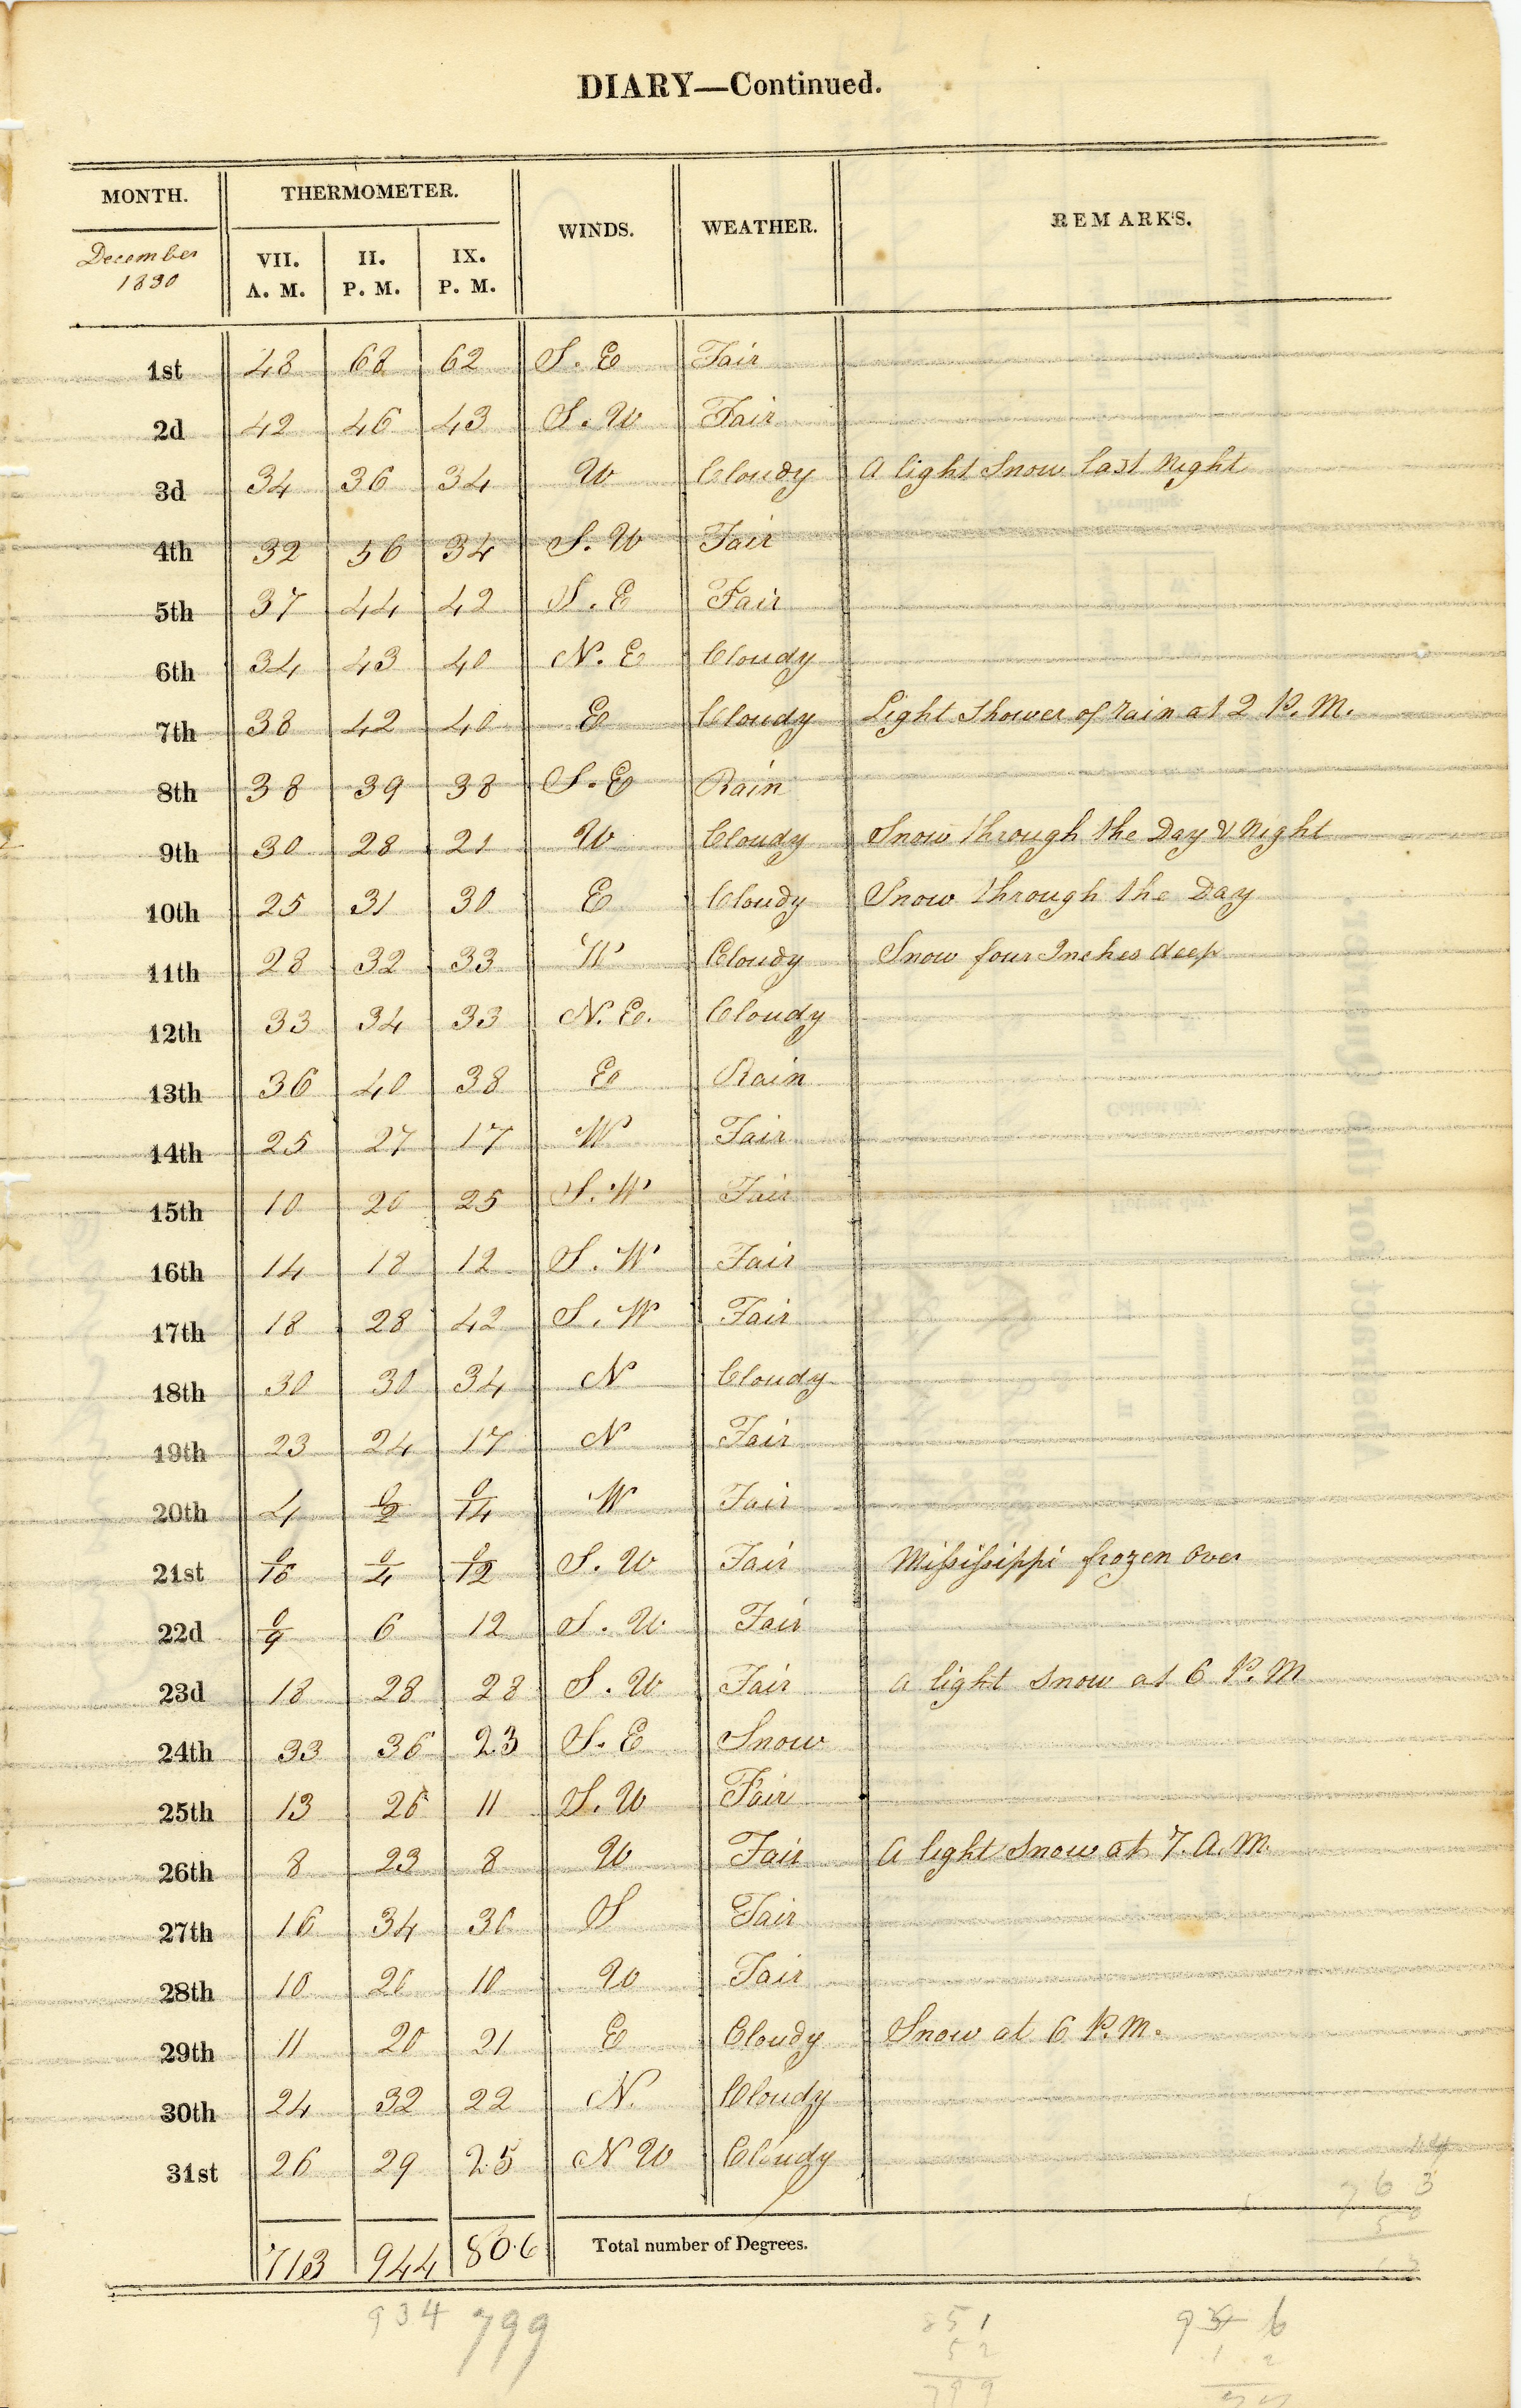 DIARY—Continued.
MONTH. THERMOMETER. WINDS. WEATHER. REMARKS.
December 1830 VII. A. M. II. P. M. IX. P. M.
1st 48 68 62 S. E Fair
2d 42 46 43 S. W Fair
3d 34 36 34 W Cloudy A light Snow last Night
4th 32 56 34 S. W Fair
5th 37 44 42 S. E Fair
6th 34 43 40 N. E Cloudy
7th 38 42 40 E Cloudy Light Shower of rain at 2 P. M.
8th 38 39 38 S. E Rain
9th 30 28 21 W Cloudy Snow through the Day & Night
10th 25 31 30 E Cloudy Snow through the Day
11th 28 32 33 W Cloudy Snow four Inches deep
12th 33 34 33 N. E. Cloudy
13th 36 40 38 E Rain
14th 25 27 17 W Fair
15th 10 26 25 S. W Fair
16th 14 18 12 S. W Fair
17th 18 28 42 S. W Fair
18th 30 30 34 N Cloudy
19th 23 24 17 N Fair
20th 4 0/2 0/14 W Fair
21st 0/16 0/4 0/12 S. W Fair Mississippi frozen Over
22d 0/9 6 12 S. W. Fair
23d 18 28 28 S. W Fair a light snow at 6 P. M
24th 33 36 23 S. E Snow
25th 13 26 11 S. W Fair
26th 8 23 8 W Fair A light Snow at 7. A. M.
27th 16 34 36 S Fair
28th 10 20 10 W Fair
29th 11 20 21 E Cloudy Snow at 6 P. M.
30th 24 32 22 N. Cloudy
31st 26 29 25 N W Cloudy
713 944 80.6 Total number of Degrees.
934 799
851
52
799